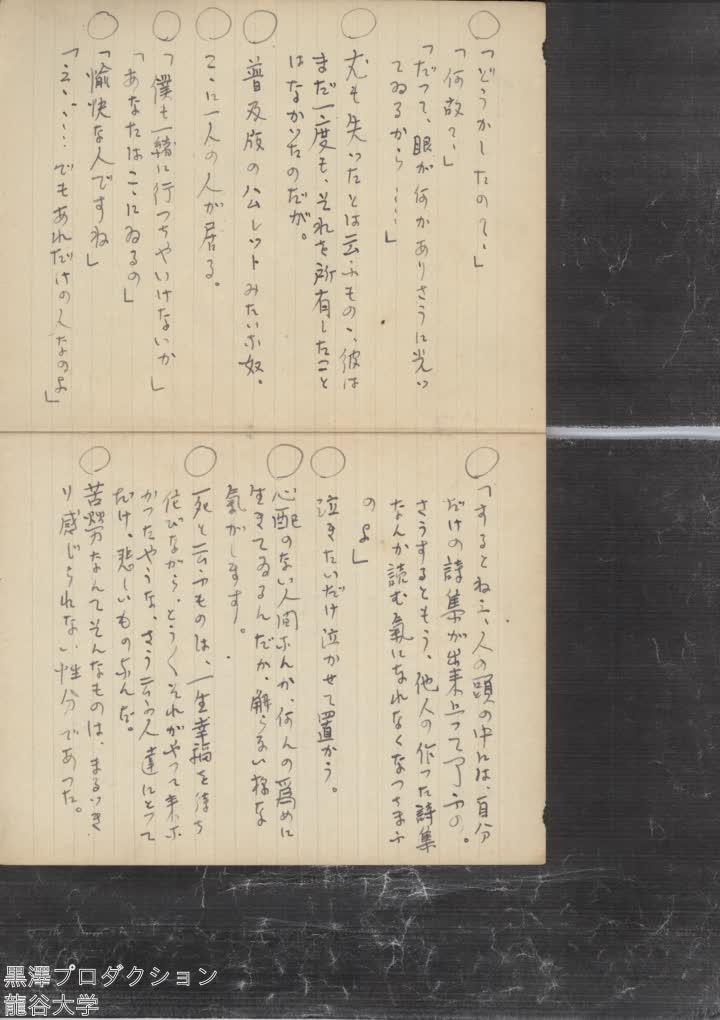 ○「どうかしたの?」
「何故?」
「だって、眼が何かありさうに光っ
てゐるから……」
○尤も失ったとは云ふものゝ、彼は
まだ一度も、それを所有したこと
はなかったのだが。
○普及版のハムレットみたいな奴。
○こゝに一人の人が居る。
○「僕も一緒に行っちゃいけないか」
「あなたはこゝにゐるの」
○「愉快な人ですね」
「えゝ……でもあれだけの人なのよ」
○「するとねえ、人の頭の中には、自分
だけの詩集が出来上って了ふの。
さうするともう、他人の作った詩集
なんか読む氣になれなくなっちまふ
のよ」
○泣きたいだけ泣かせて置かう。
○心配のない人間なんか、何んの爲めに
生きてゐるんだか、解らない様な
氣がします。
○死と云ふものは、一生幸福を待ち
佗びながら、とう〳〵それがやって来な
かったやうな、さう云ふ人達にとって
だけ、悲しいものなんだ。
○苦勞なんてそんなものは、まるっき
り感じられない性分であった。
黒澤プロダクション
龍谷大学